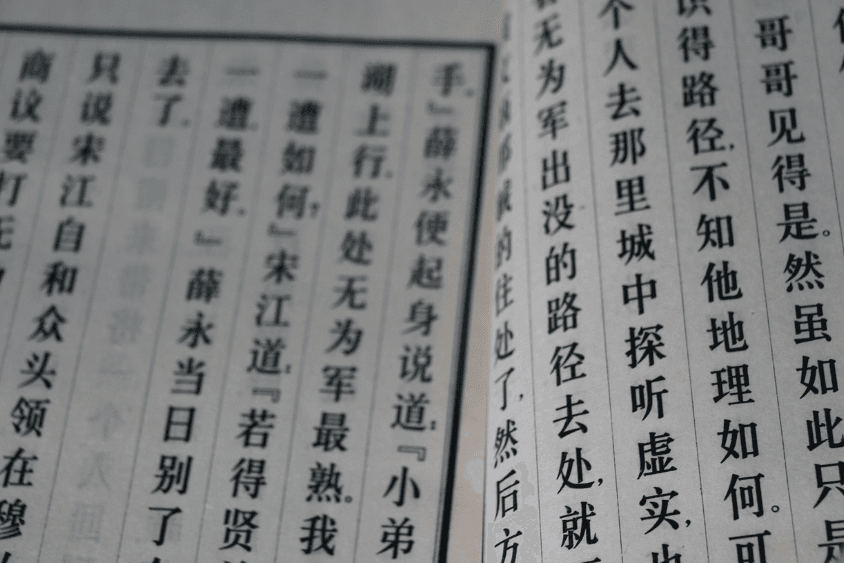 哥哥见得是。然虽如此只是
识得路径，不知他地理如何。可
个人去那里城中探听虚实，也
无为军出没的路径去处，就
的住处了，然后方
手。』薛永便起身说道：『小弟
湖上行。此处无为军最熟。我
一遭如何？』宋江道：『若得贤
一遭，最好。』薛永当日别了
去了。
只说宋江自和众头领在穆
商议要打无